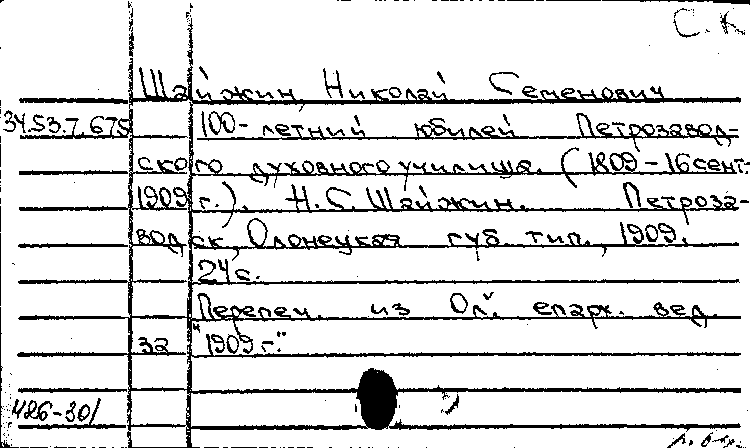 С. К
Шайжин, Николай Семенович
34.53.7.675 100-летний юбилей Петрозавод-
ского духовного училища. (1809-16 сент.
1909 г.). Н.С. Шайжин. Петроза-
водск, Олонецкая губ. тип., 1909.
24 с.
Перепеч. из "Ол. епарх. вед.
за 1909 г."
486-30/